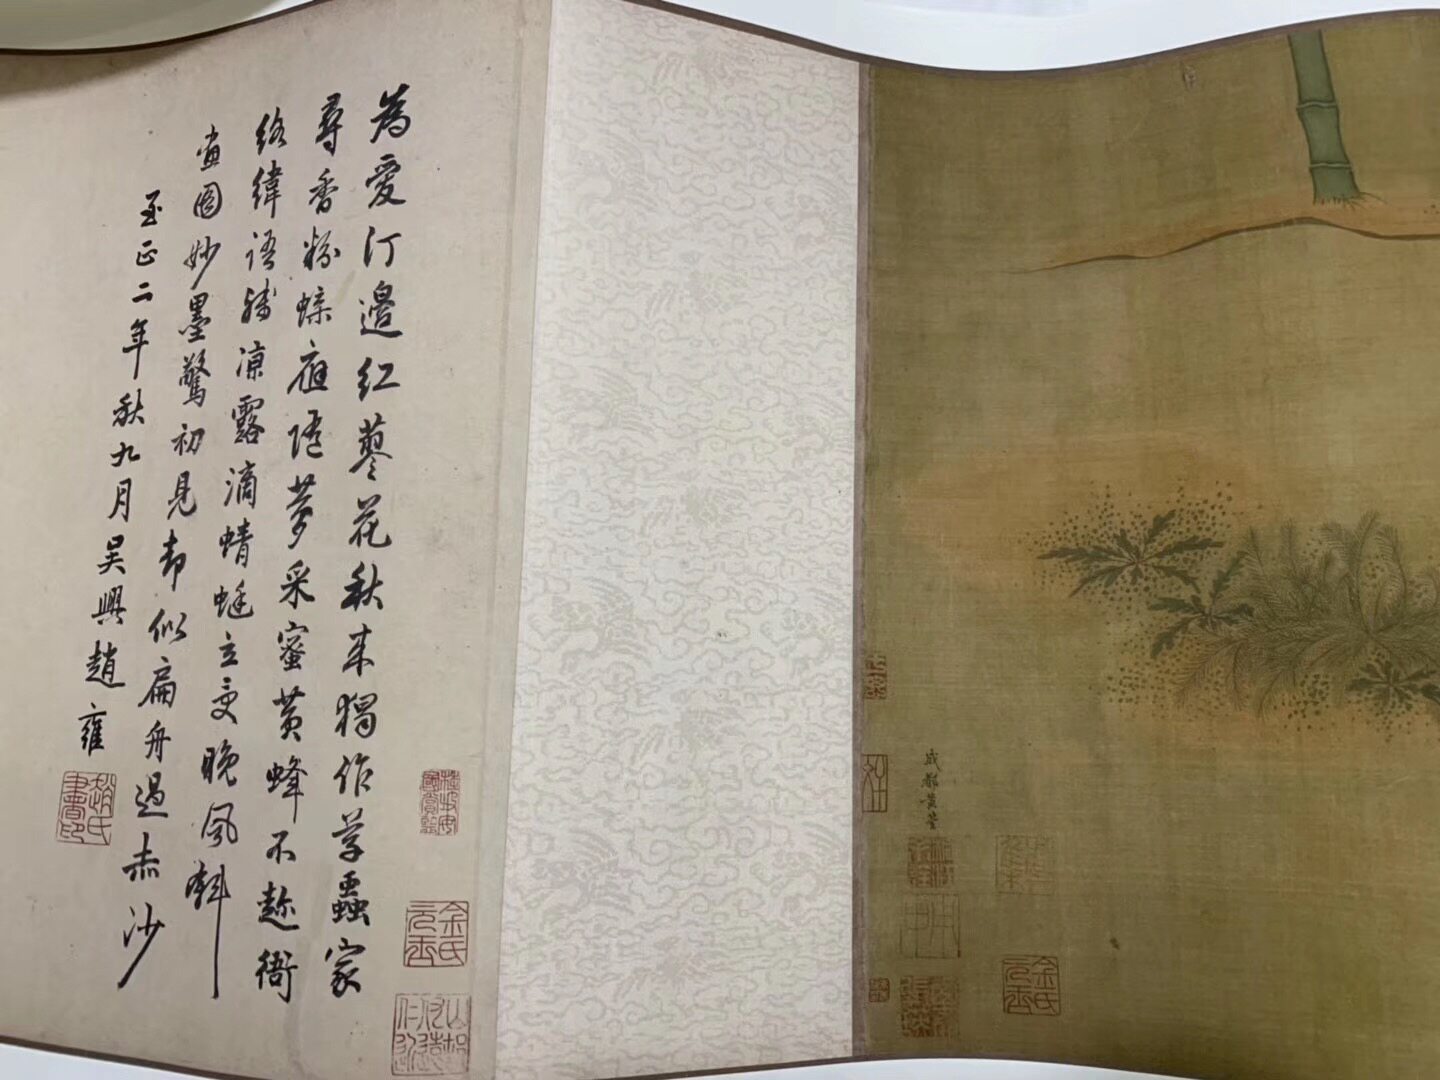 成都黄筌
為愛汀邊紅蓼花秋來獨作草蟲家
尋香粉蝶應隨夢采蜜黃蜂不趂衙
絡緯語殘凉露滴蜻蜓立受晚風斜
畫圖妙墨驚初見却似扁舟過赤沙
至正二年秋九月吳興趙雍
趙氏書印
余氏元玉